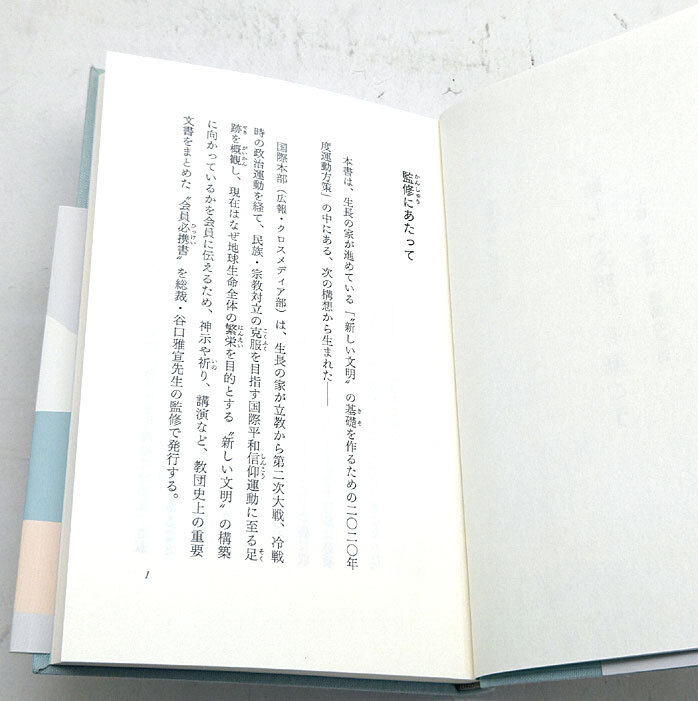 監修にあたって
本書は、生長の家が進めている「〝新しい文明〟の基礎を作るための二〇二〇年
度運動方策」の中にある、次の構想から生まれた――
国際本部（広報・クロスメディア部）は、生長の家が立教から第二次大戦、冷戦
時の政治運動を経て、民族・宗教対立の克服を目指す国際平和信仰運動に至る足
跡を概観し、現在はなぜ地球生命全体の繁栄を目的とする〝新しい文明〟の構築
に向かっているかを会員に伝えるため、神示や祈り、講演など、教団史上の重要
文書をまとめた〝会員必携書〟を総裁・谷口雅宣先生の監修で発行する。
1